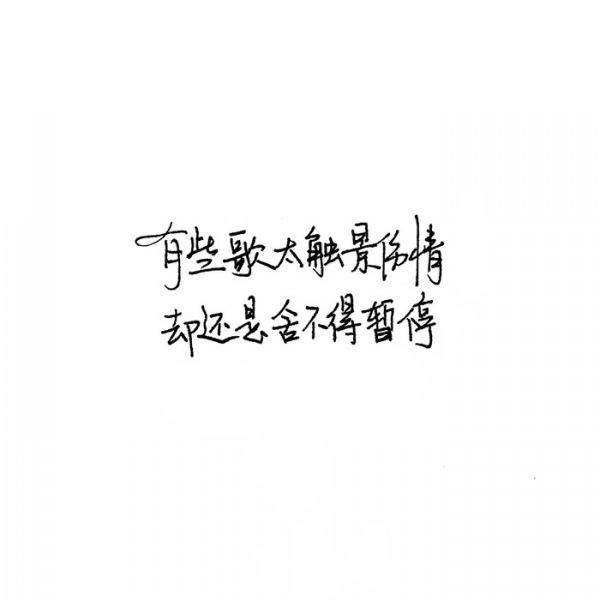 有些歌太触景伤情
却还是舍不得暂停